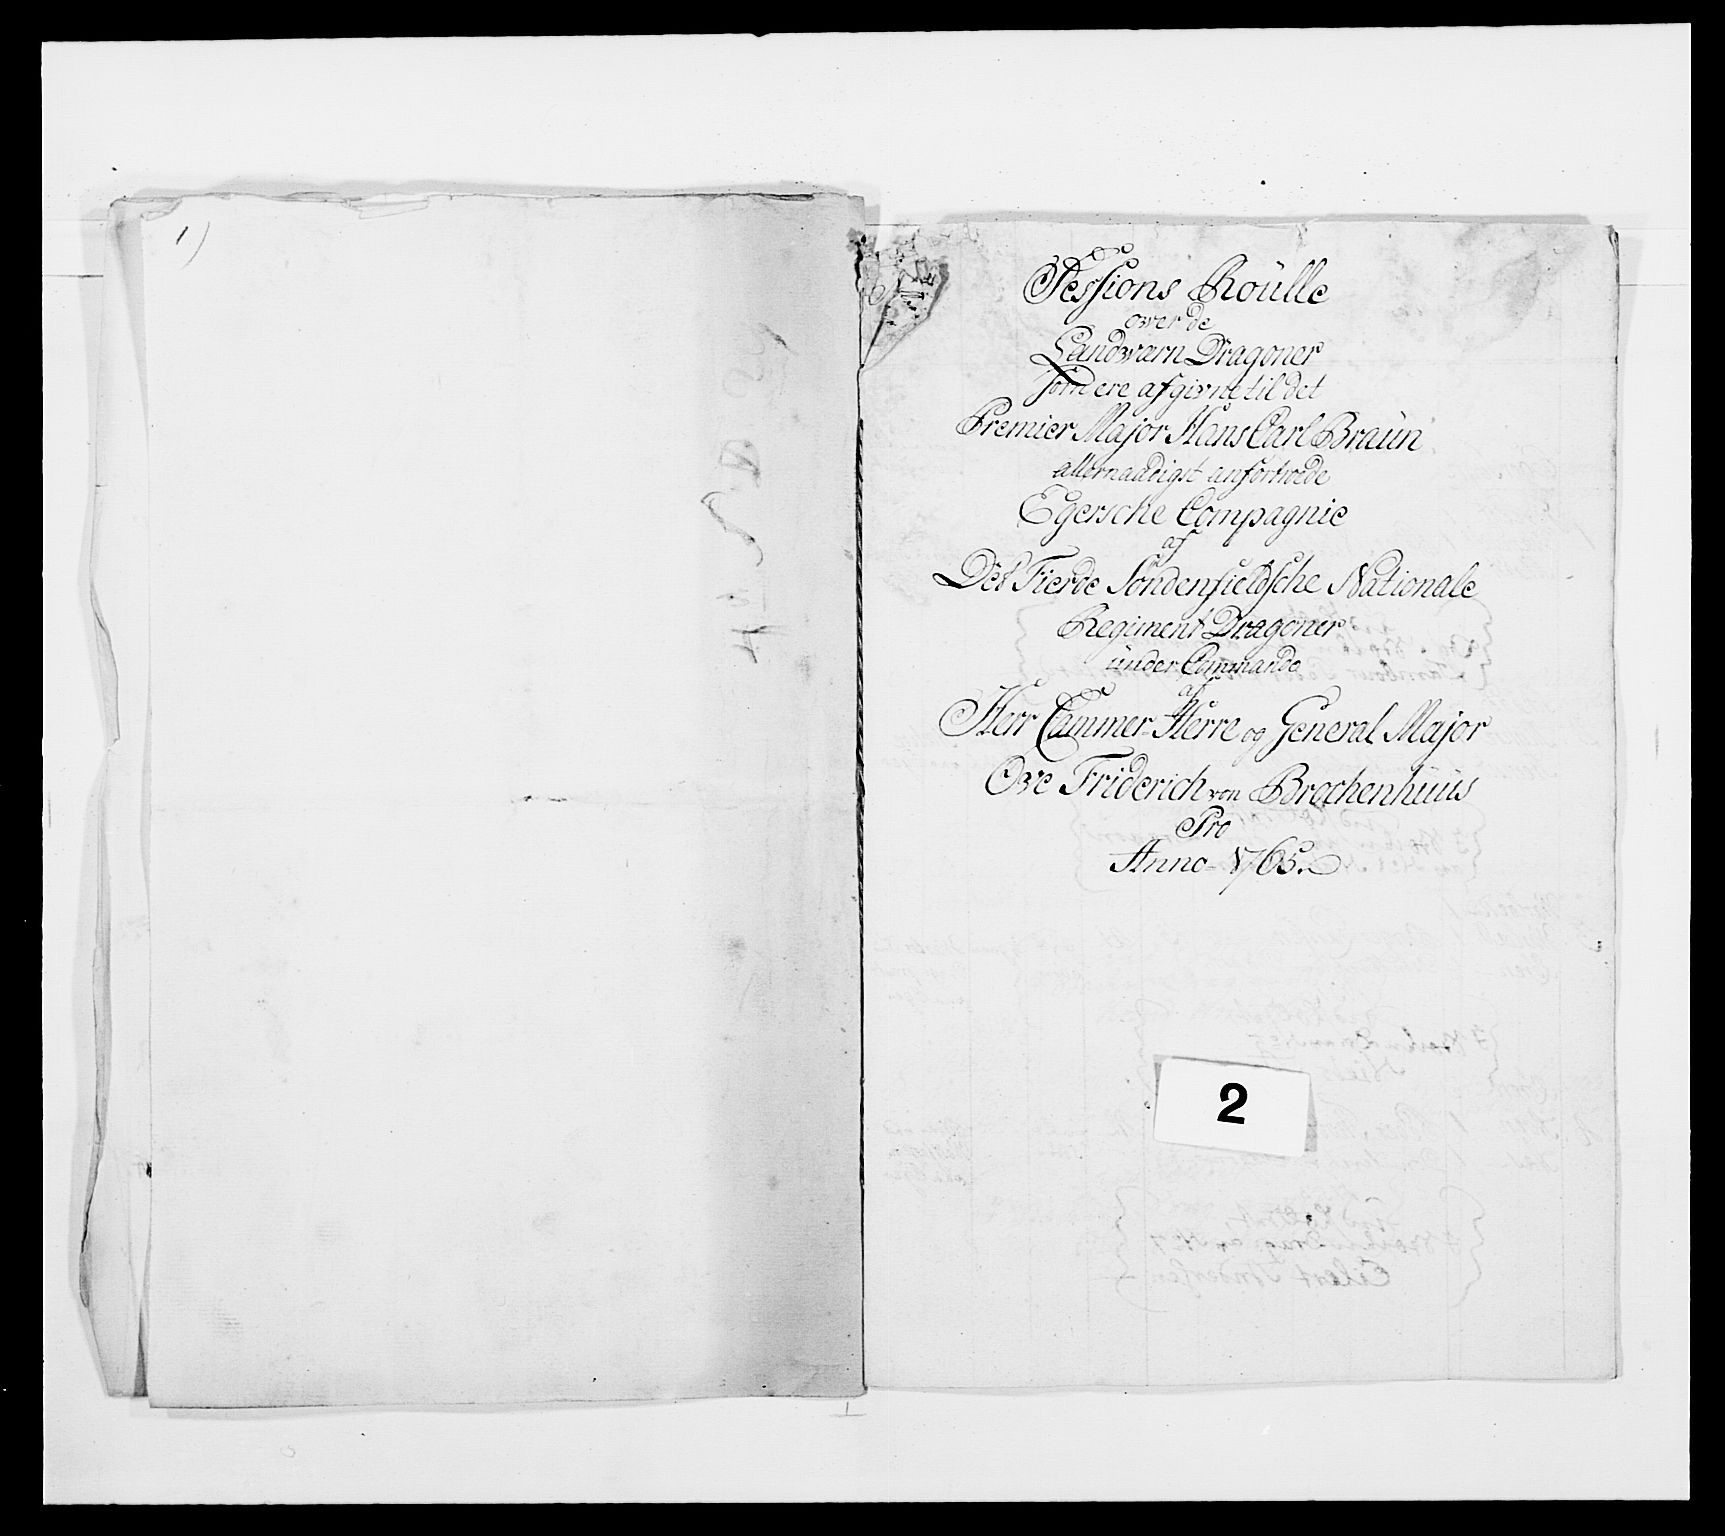 1)
Sessions Roülle
over de
Landværn Dragoner
som ere afgivne til det
Premier Major Hans Carl Braün
allernaadigst anfortroede
Egersche Compagnie
af
Det Fierde Söndenfieldsche Nationale
Regiment Dragoner
ünder Commando
af
Herr Cammer-Herre og General Major
Ove Friderich von Brochenhuüs
Pro
Anno 1765.
2